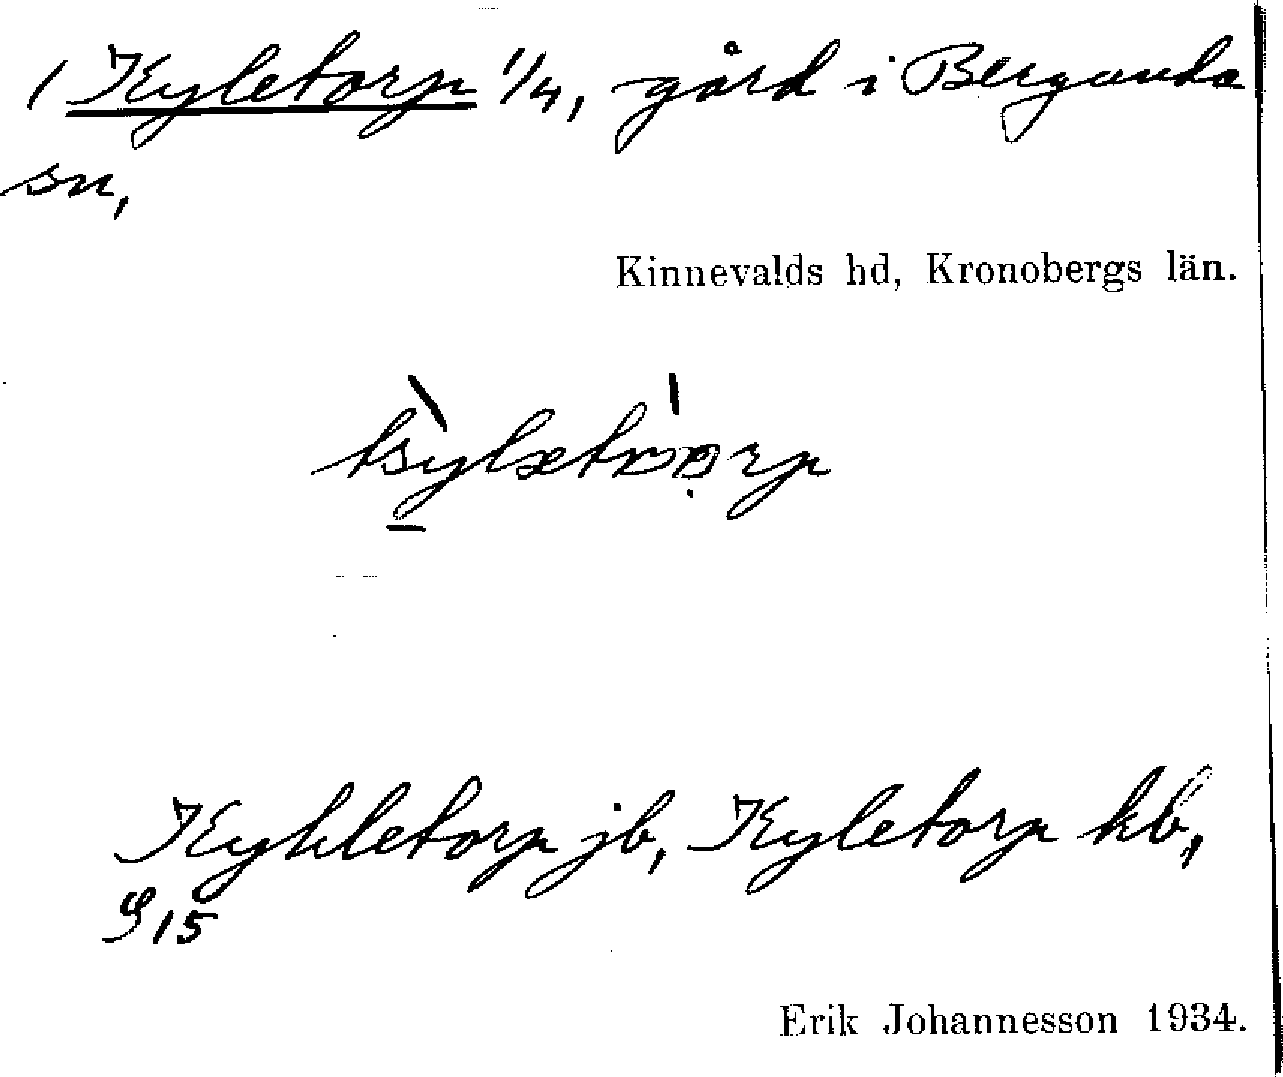 1 Kyletorp 1/4, gård i Bergunda
sn,
Kinnevalds hd, Kronobergs län.
Kyhletorp jb, Kyletorp kb,
G 15
Erik Johannesson 1934.